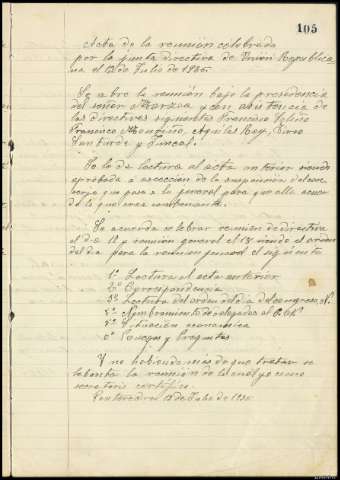 105
Acta de la reunión celebrada
por la junta directiva de Unión Republica-
na el 12 de Julio de 1936.
Se abre la reunión bajo la presidencia
del señor y con asistencia de
los directivos siguientes Francisco
Francisco Aquiles Rey,
y Juncal.
Se da lectura al acta anterior siendo
aprobada a excepción de la
que pasa a la general para que ella acuer
de lo que crea conveniente.
Se acuerda celebrar reunión de directiva
el dia y reunión general el 15 siendo el orden
del dia para la reunion general el siguiente
1º Lectura al acta anterior
2º Correspondencia
3º Lectura del orden del Dia del congreso
4º Nombramiento de delegados al
5º Situación economica
6º Ruegos y Preguntas
Y no habiendo más de que tratar se
lebanta la reunión de la cual yo como
secretario certifico.
Pontevedra 12 de Julio de 1936